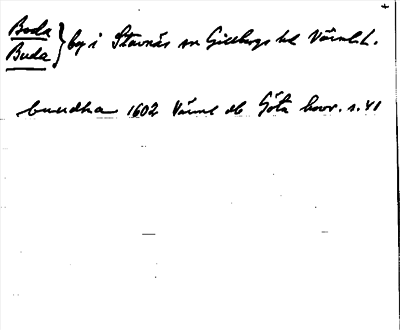 Boda
Buda } by i Stavnäs sn Gillbergs hd Värml. L.
buudha 1602 Värml ob Göta hovr. s. 41